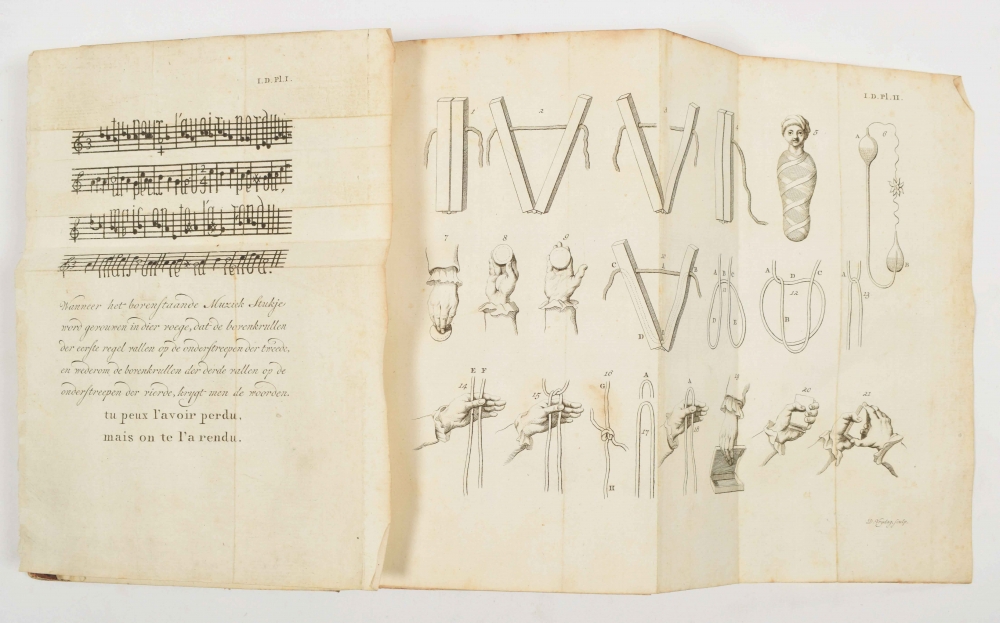 I. D. Pl. I.
tu peux l'avoir perdu,
mais on te l'a rendu.
Wanneer het bovenstaande Muziek Stukje
word gevouwen in dier voege, dat de bovenkrullen
der eerste regel vallen op de onderstreepen der tweede,
en wederom de bovenkrullen der derde vallen op de
onderstreepen der vierde, krygt men de woorden.
tu peux l'avoir perdu,
mais on te l'a rendu.
I. D. Pl. II.
1 2 3 4 5 A 6 B
7 8 9 C 2 B D A B C D E A D C 12 B A 13
14 E F 15 16 G H A 17 A 19 20 21